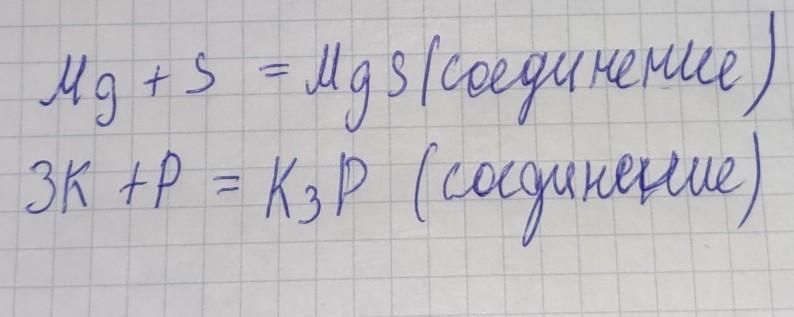 Mg + S = MgS (соединение)
3K + P = K₃P (соединение)